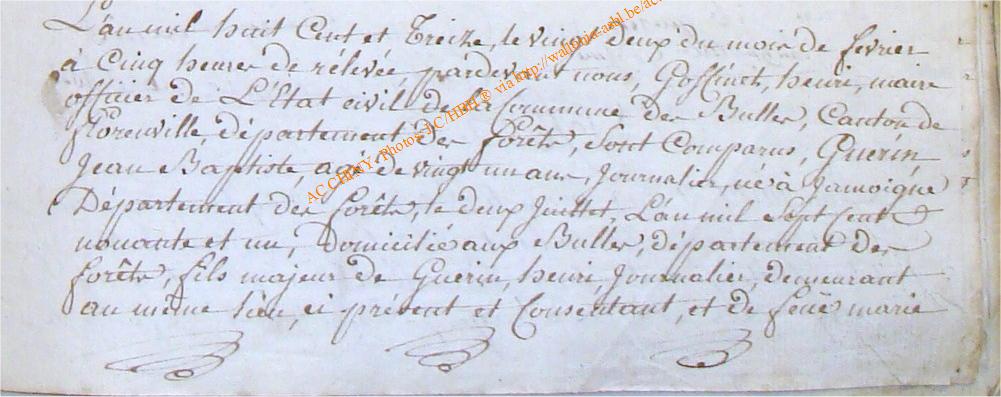 L'an mil huit Cent et Treize, le vingt deux du mois de fevrier
à Cinq heures de rélévée pardevant nous, Goffinet, henri, maire
officier de L'Etat civil de la Commune des Bulles, Canton de
florenville, département des forêts, Sont Comparus, Guerin
Jean Baptiste, agé de vingt un ans, Journalier, né à Jamoigne
Département des forêts, le deux Juillet, L'an mil Sept Cent
nonante et un, Domicilié aux Bulles, département des
forêts, fils majeur de Guerin, henri, Journalier, demeurant
au même lieu, ci présent et Consentant, et de feue marie
ACCHINY Photos LC/HBH ® via http://wallonia-asbl.be/ac